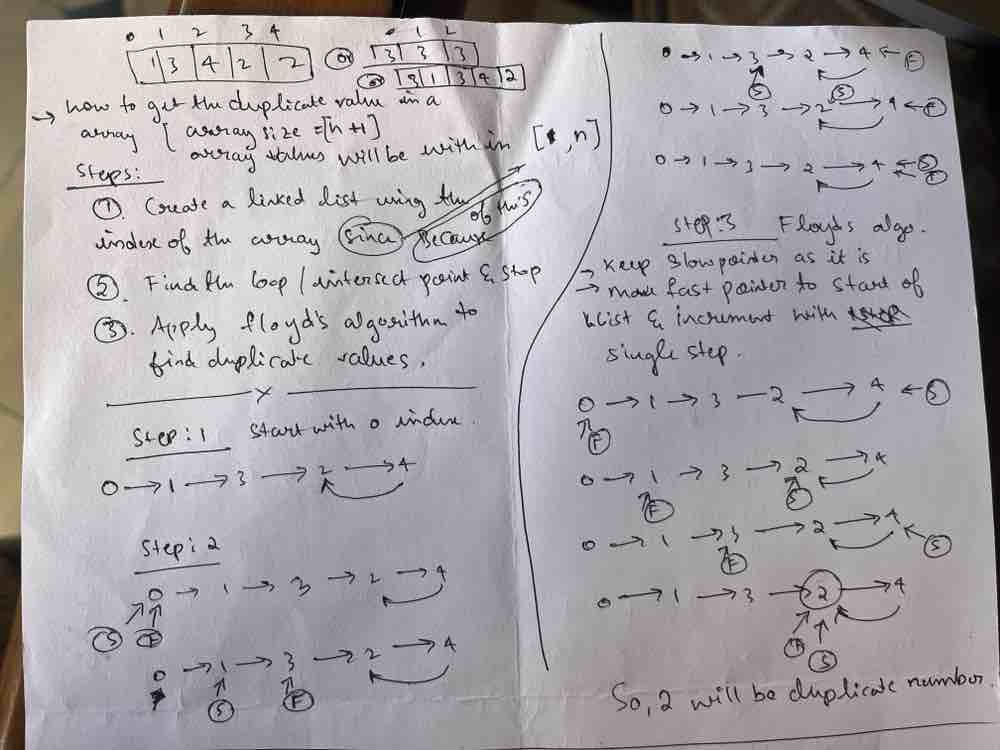 0 1 2 3 4
1 3 4 2 2
or
0 1 2
3 3 3
or
3 1 3 4 2
→ how to get the duplicate value in a
array [ array size = [n+1]
array values will be with in [1, n]
Steps:
① Create a linked list using the
index of the array Since Because of this
②. Find the loop / intersect point & stop
③. Apply floyd's algorithm to
find duplicate values.
x
Step: 1 Start with 0 index.
0 → 1 → 3 → 2 → 4
Step: 2
0 → 1 → 3 → 2 → 4
S F
0 → 1 → 3 → 2 → 4
S F
0 → 1 → 3 → 2 → 4 ← F
S S
0 → 1 → 3 → 2 → 4 ← F
0 → 1 → 3 → 2 → 4 ← S
F
Step:3 Floyds algo.
→ Keep slowpointer as it is
→ move fast pointer to start of
list & increment with
single step.
0 → 1 → 3 — 2 → 4 ← S
F
0 → 1 → 3 → 2 → 4
F S
0 → 1 → 3 → 2 → 4
F S
0 → 1 → 3 → 2 → 4
F S
So, 2 will be duplicate number.